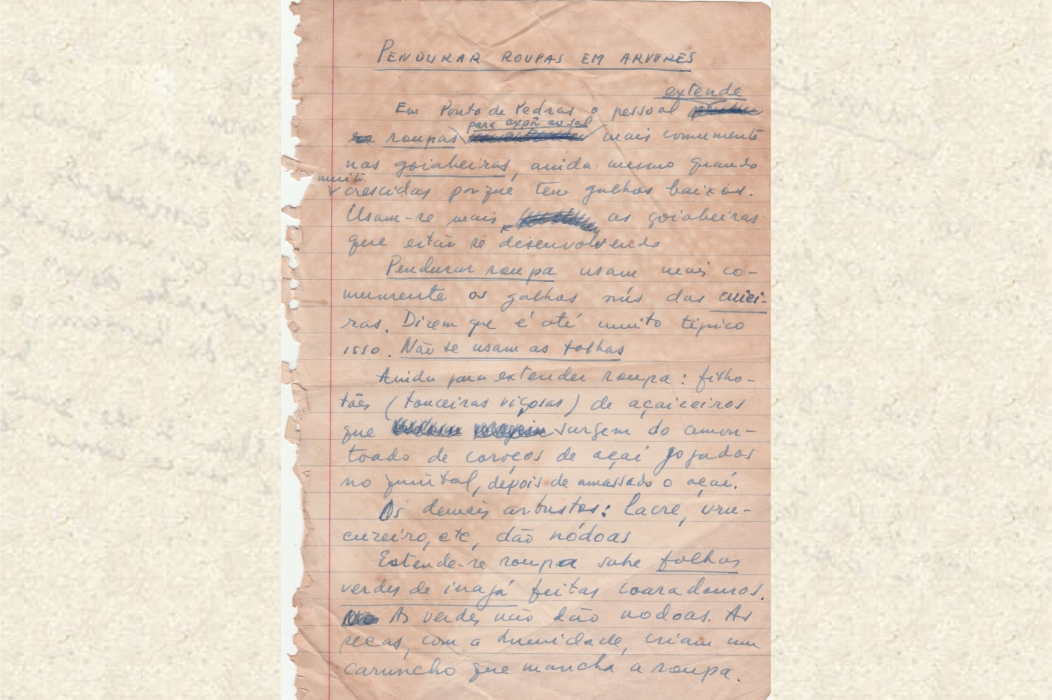 PENDURAR ROUPAS EM ARVORES
extende
Em Ponta de Pedras o pessoal
para expô ao sol
roupas mais comumente
nas goiabeiras, ainda mesmo quando
muito
crescidas porque têm galhos baixos.
Usam-se mais as goiabeiras
que estão se desenvolvendo
Pendurar roupa usam mais co-
mumente os galhos nús das cuiei-
ras. Dizem que é até muito típico
isso. Não se usam as folhas
Ainda para extender roupa: filho-
tões (touceiras viçosas) de açaizeiros
que surgem do amon-
toado de caroços de açaí jogados
no quintal, depois de amassado o açaí.
Os demais arbustos: lacre, uru-
cuzeiro, etc, dão nódoas
Estende-se roupa sobre folhas
verdes de inajá feitas coaradouros.
As verdes não dão nodoas. As
secas, com a humidade, criam um
caruncho que mancha a roupa.